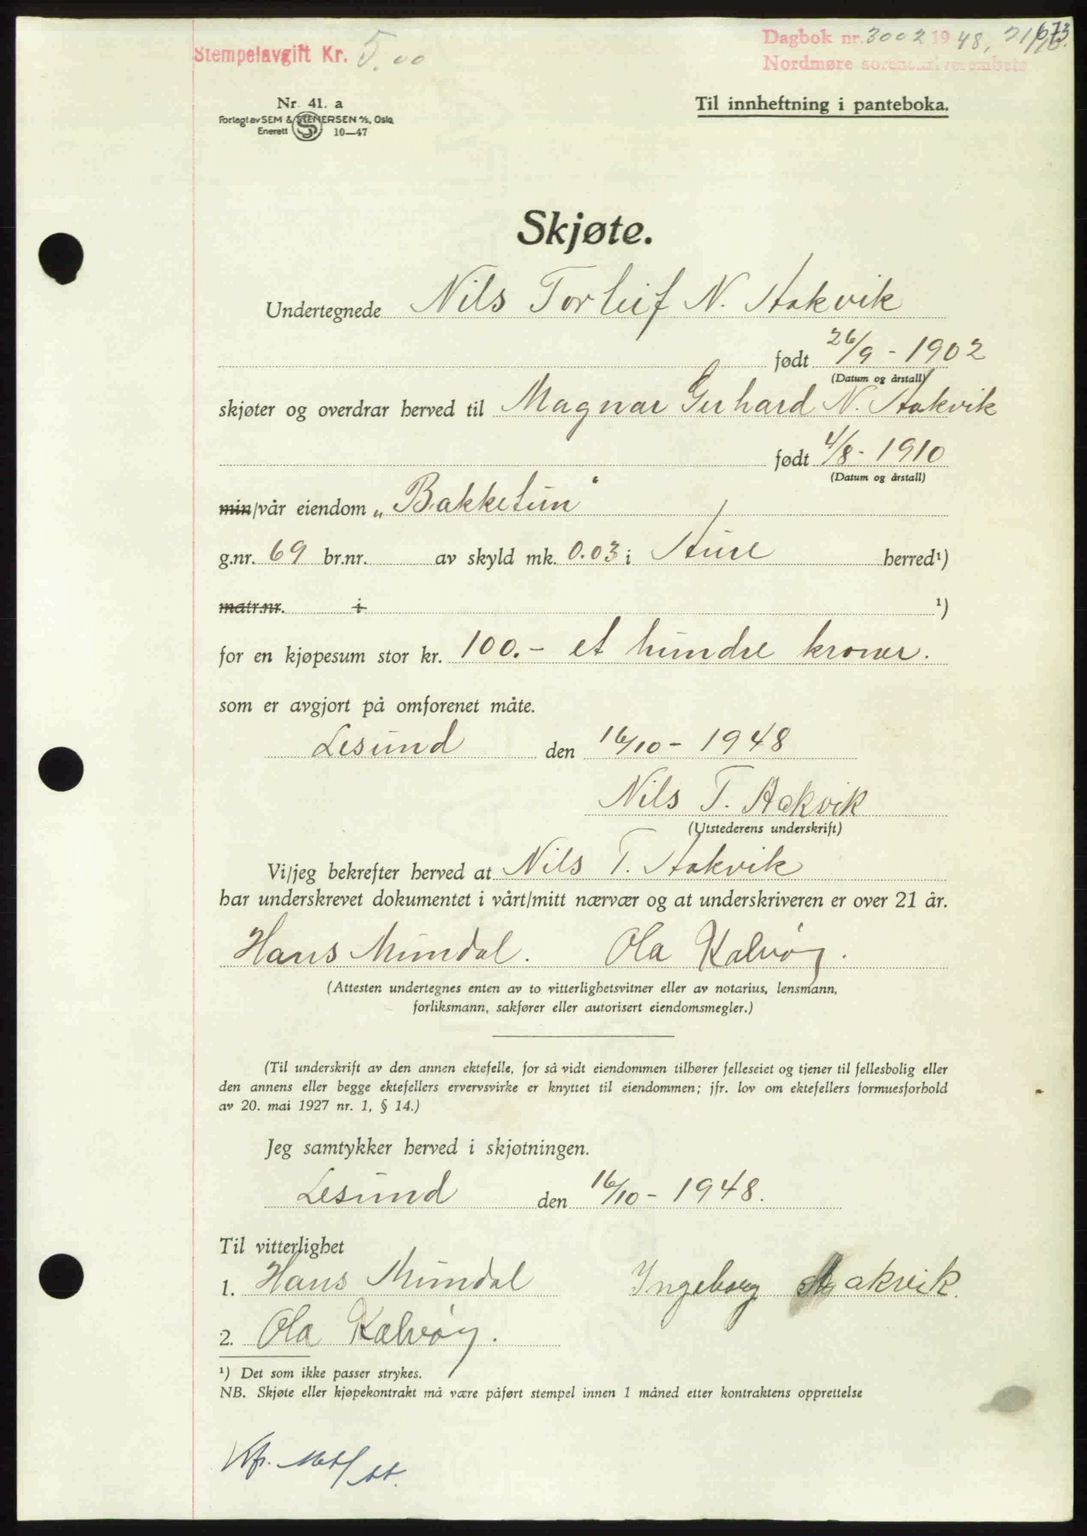 Stempelavgift Kr. 5.00
Dagbok nr. 3002 1948, 21/10. 673
Nordmøre sorenskriverembete
Nr. 41. a
Forlegt av SEM & STENERSEN A/S, Oslo
Enerett 10—47
Til innheftning i panteboka.
Skjøte.
Undertegnede Nils Torleif N. Aakvik
født 26/9 - 1902
(Datum og årstall)
skjøter og overdrar herved til Magnar Gerhard N. Aakvik
født 4/8 - 1910
(Datum og årstall)
min/vår eiendom „Bakketun"
g.nr. 69 br.nr. av skyld mk. 0.03 i Aure herred¹)
matr.nr. i ¹)
for en kjøpesum stor kr. 100.- et hundre kroner.
som er avgjort på omforenet måte.
Lesund den 16/10 - 1948
Nils T. Aakvik
(Utstederens underskrift)
Vi/jeg bekrefter herved at Nils T. Aakvik
har underskrevet dokumentet i vårt/mitt nærvær og at underskriveren er over 21 år.
Hans Mundal. Ola Kalvøy.
(Attesten undertegnes enten av to vitterlighetsvitner eller av notarius, lensmann,
forliksmann, sakfører eller autorisert eiendomsmegler.)
(Til underskrift av den annen ektefelle, for så vidt eiendommen tilhører felleseiet og tjener til fellesbolig eller
den annens eller begge ektefellers ervervsvirke er knyttet til eiendommen; jfr. lov om ektefellers formuesforhold
av 20. mai 1927 nr. 1, § 14.)
Jeg samtykker herved i skjøtningen.
Lesund den 16/10 - 1948.
Til vitterlighet
1. Hans Mundal Ingeborg Aakvik.
2. Ola Kalvøy.
¹) Det som ikke passer strykes.
NB. Skjøte eller kjøpekontrakt må være påført stempel innen 1 måned etter kontraktens opprettelse